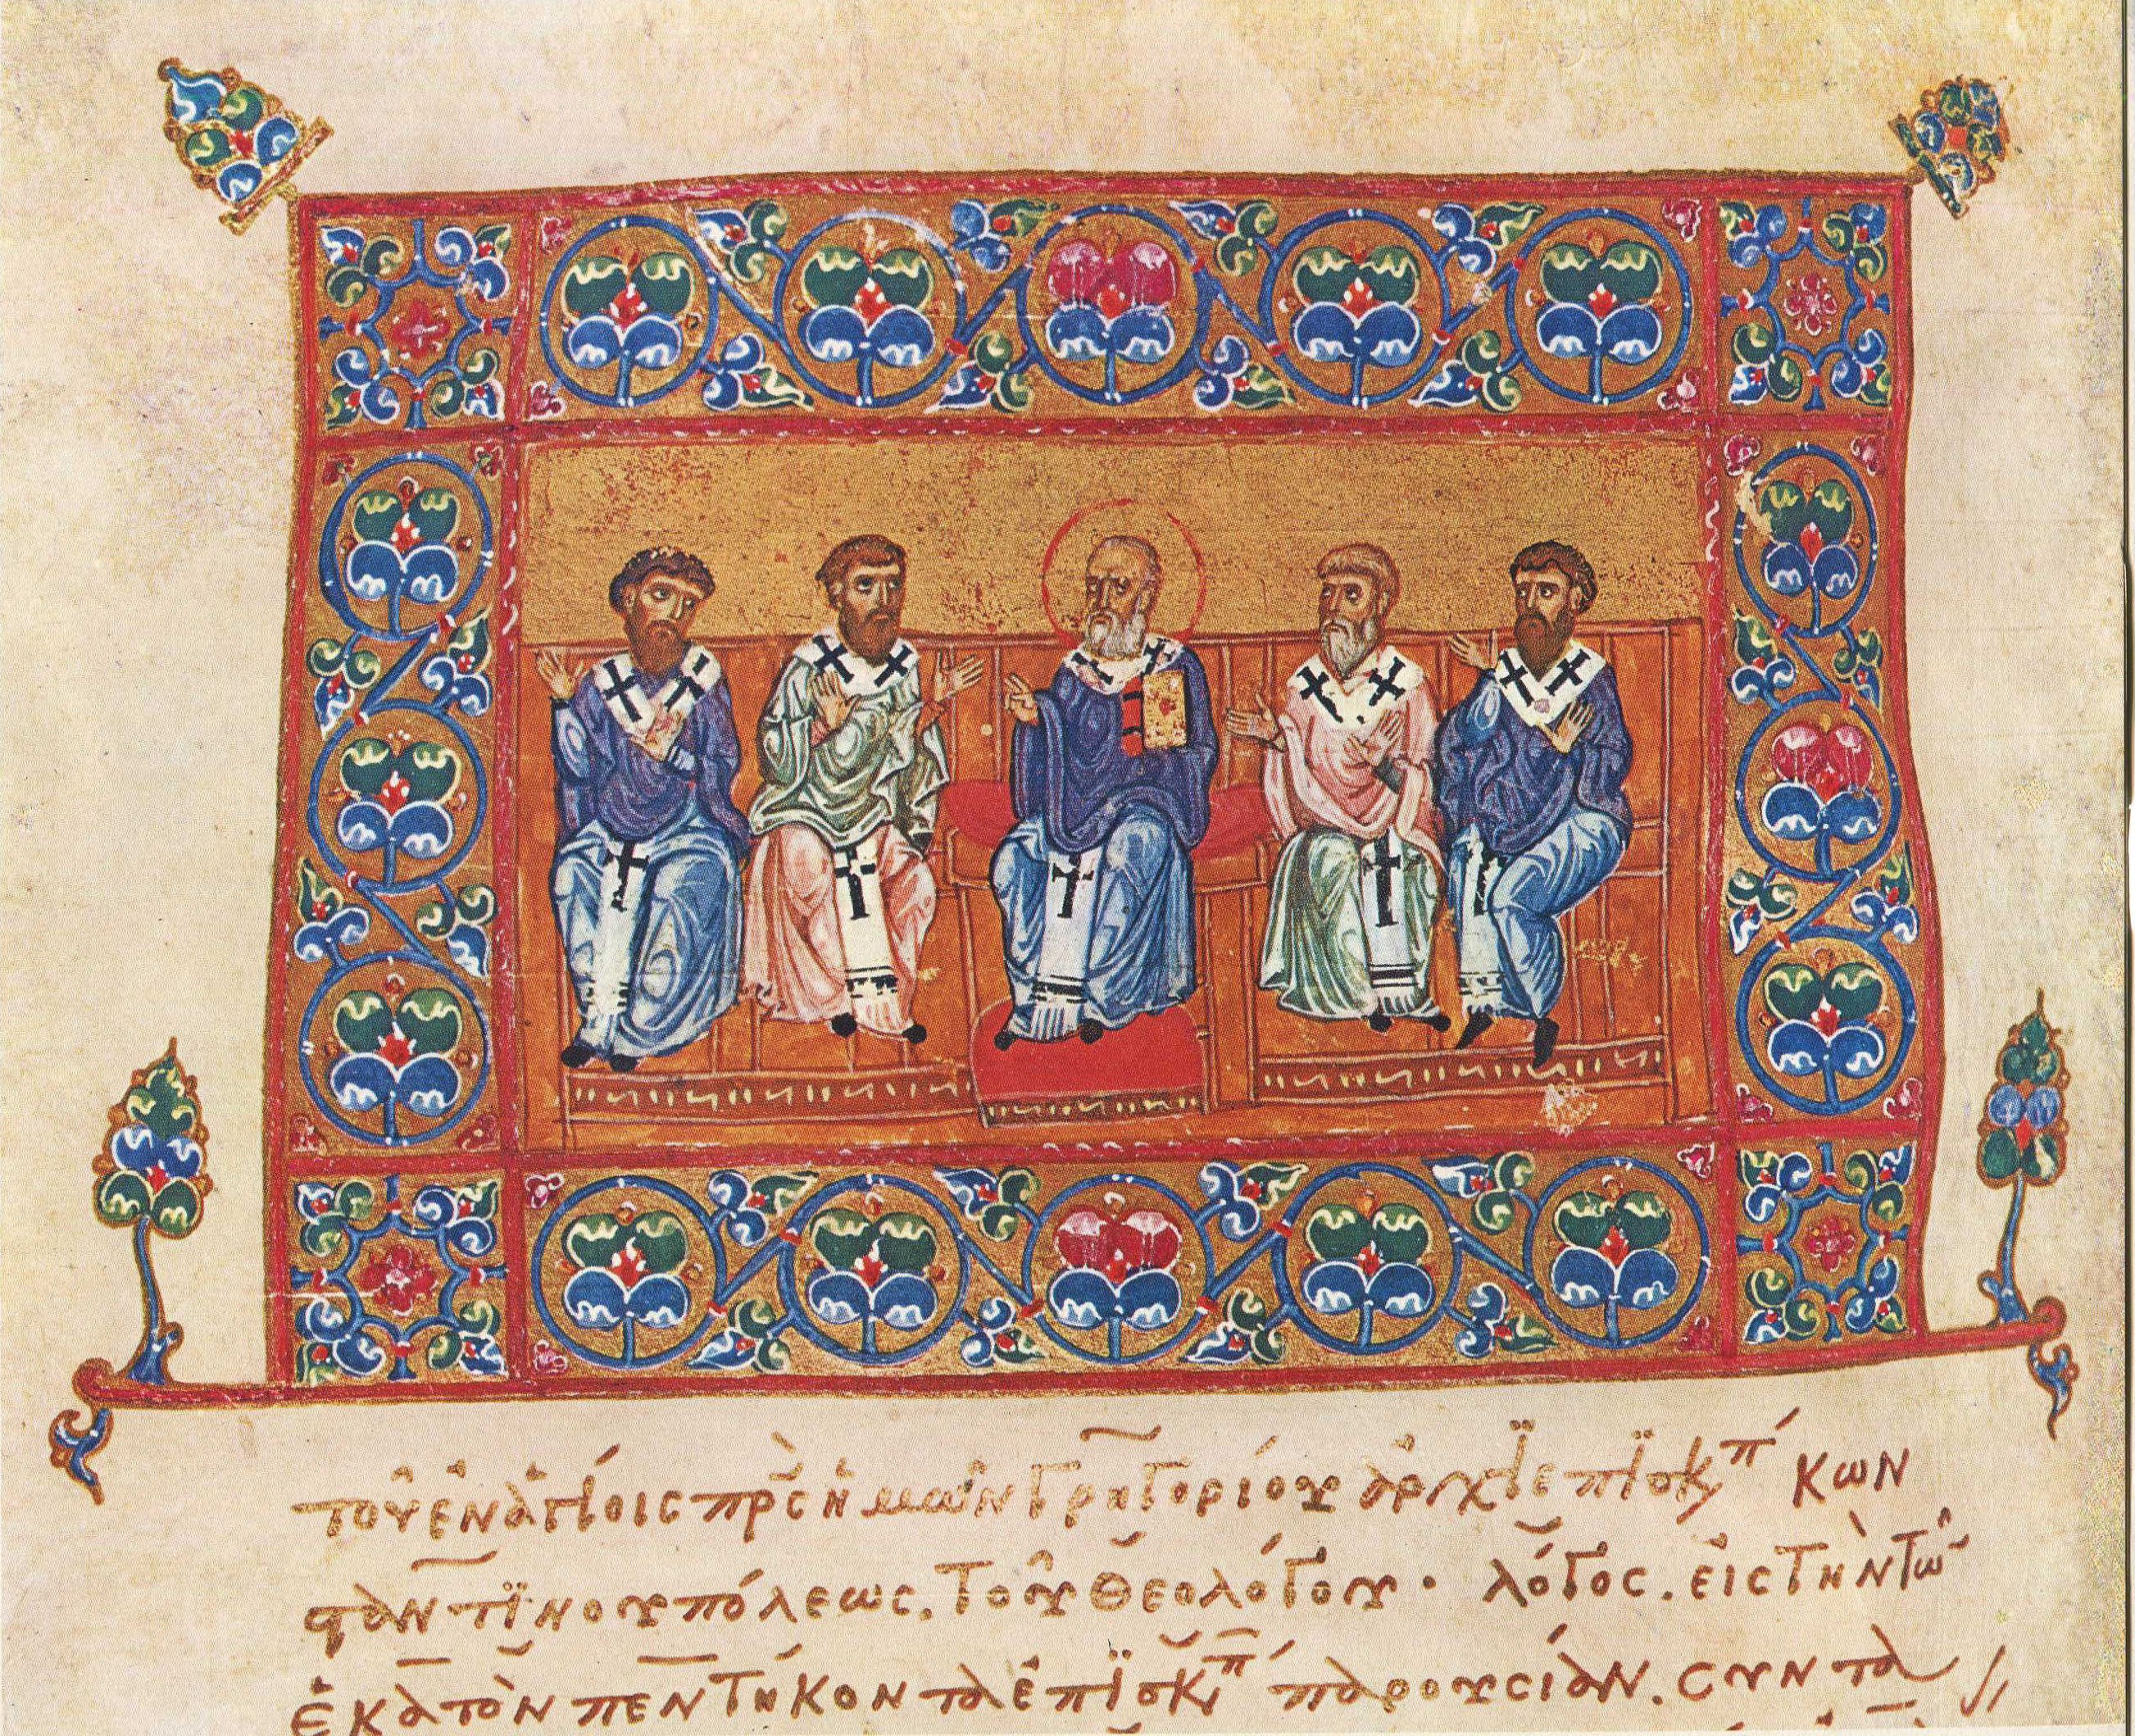 τοῦ ἐν ἁγίοις πρ̅ς ἡμῶν Γρηγορίου ἀρχϊεπϊσκ^π κων
σταντϊνουπόλεως, τοῦ θεολόγου· λόγος. εἰς τὴν τῶ
ἑκατὸν πεντήκοντα ἐπϊσκ^π παρουσίαν. συντα